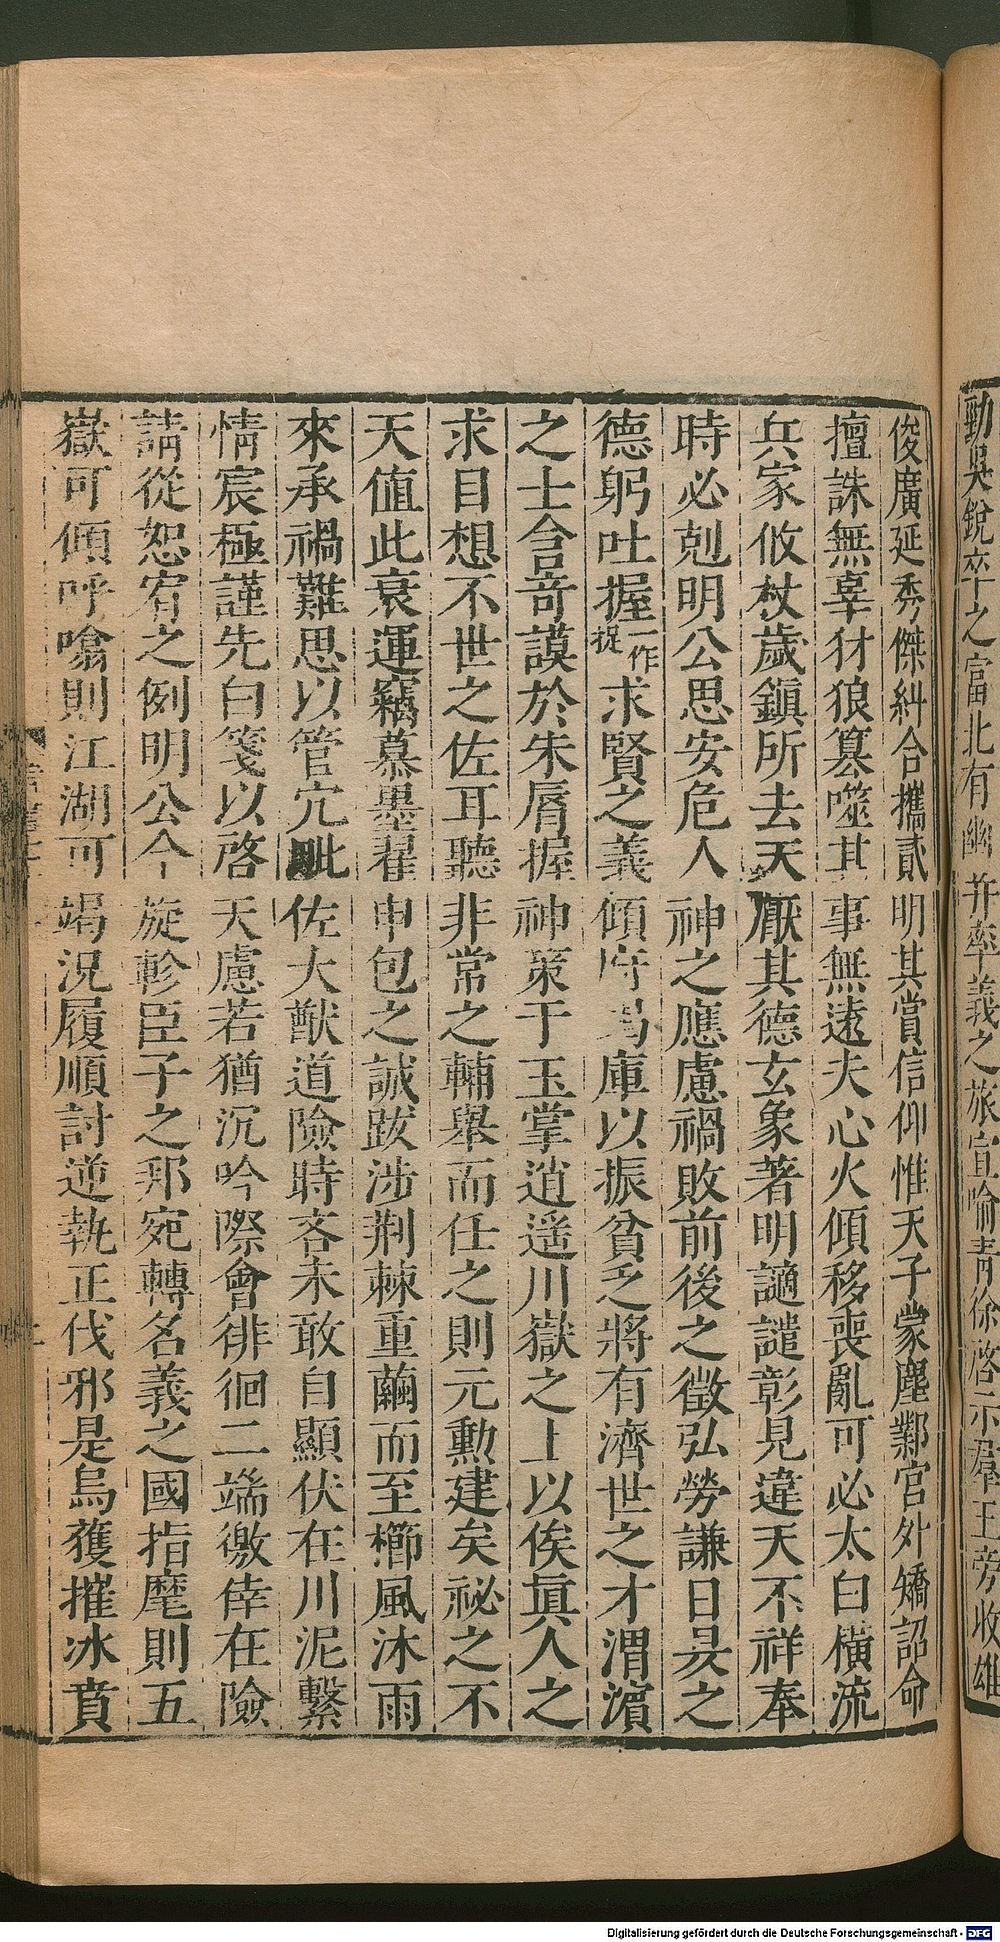 勁吳銳卒之富北有幽并率義之旅宣喻青徐啓示羣王旁收雄
俊廣延秀傑糾合攜貳明其賞信仰惟天子蒙塵鄴宮外矯詔命
擅誅無辜犲狼簒噬其事無遠夫心火傾移喪亂可必太白橫流
兵家攸杖歲鎮所去天厭其德玄象著明讁譴彰見違天不祥奉
時必剋明公思安危人神之應慮禍敗前後之徵弘勞謙日昃之
德躬吐握一作捉求賢之義傾府竭庫以振貧乏將有濟世之才渭濵
之士含奇謨於朱脣握神策于玉掌逍遥川嶽之上以俟眞人之
求目想不世之佐耳聽非常之輔舉而任之則元勳建矣祕之不
天值此衰運竊慕墨翟申包之誠跋涉荆棘重繭而至櫛風沐雨
來承禍難思以管穴毗佐大猷道險時吝未敢自顯伏在川泥繫
情宸極謹先白箋以啓天慮若猶沉吟際會徘徊二端徼倖在險
請從恕宥之例明公今旋軫臣子之邦宛轉名義之國指麾則五
嶽可傾呼噏則江湖可竭況履順討逆執正伐邪是烏獲摧冰賁
Digitalisierung gefördert durch die Deutsche Forschungsgemeinschaft - DFG